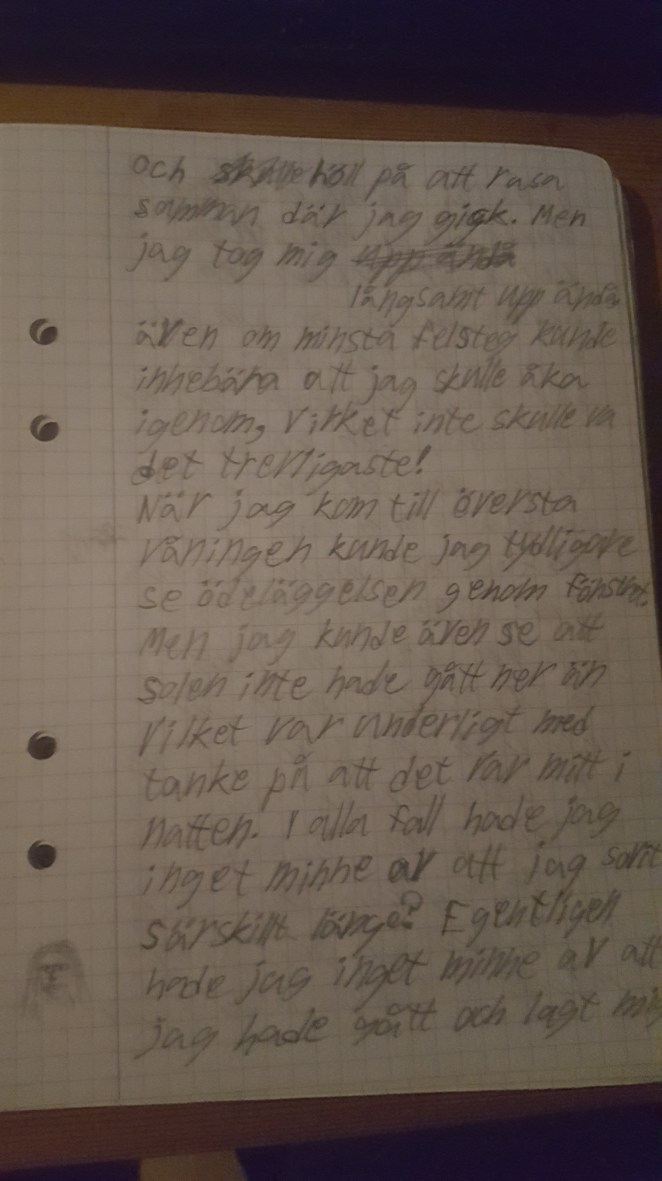 och skulle höll på att rasa
samman där jag gick. Men
jag tog mig upp ändå
långsamt upp ändå
även om minsta felsteg kunde
innebära att jag skulle åka
igenom, vilket inte skulle va
det trevligaste!
När jag kom till översta
våningen kunde jag tydligare
se ödeläggelsen genom fönstret
Men jag kunde även se att
solen inte hade gått ner än
vilket var underligt med
tanke på att det var mitt i
natten. I alla fall hade jag
inget minne av att jag sovit
särskilt länge? Egentligen
hade jag inget minne av att
jag hade gått och lagt mig